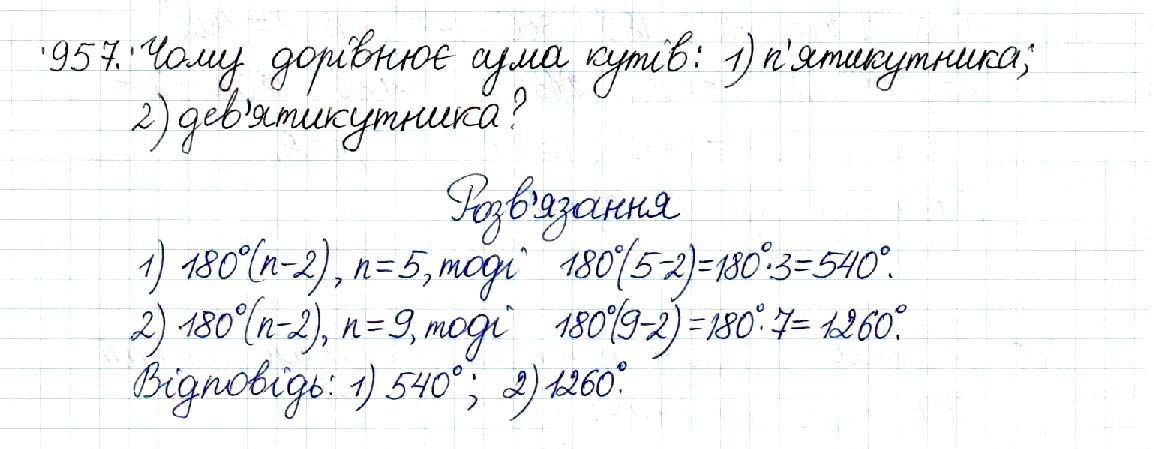 957. Чому дорівнює сума кутів: 1) п'ятикутника;
2) дев'ятикутника?
Розв'язання
1) 180°(n-2), n=5, тоді 180°(5-2)=180°·3=540°.
2) 180°(n-2), n=9, тоді 180°(9-2)=180°·7=1260°.
Відповідь: 1) 540°; 2) 1260°.